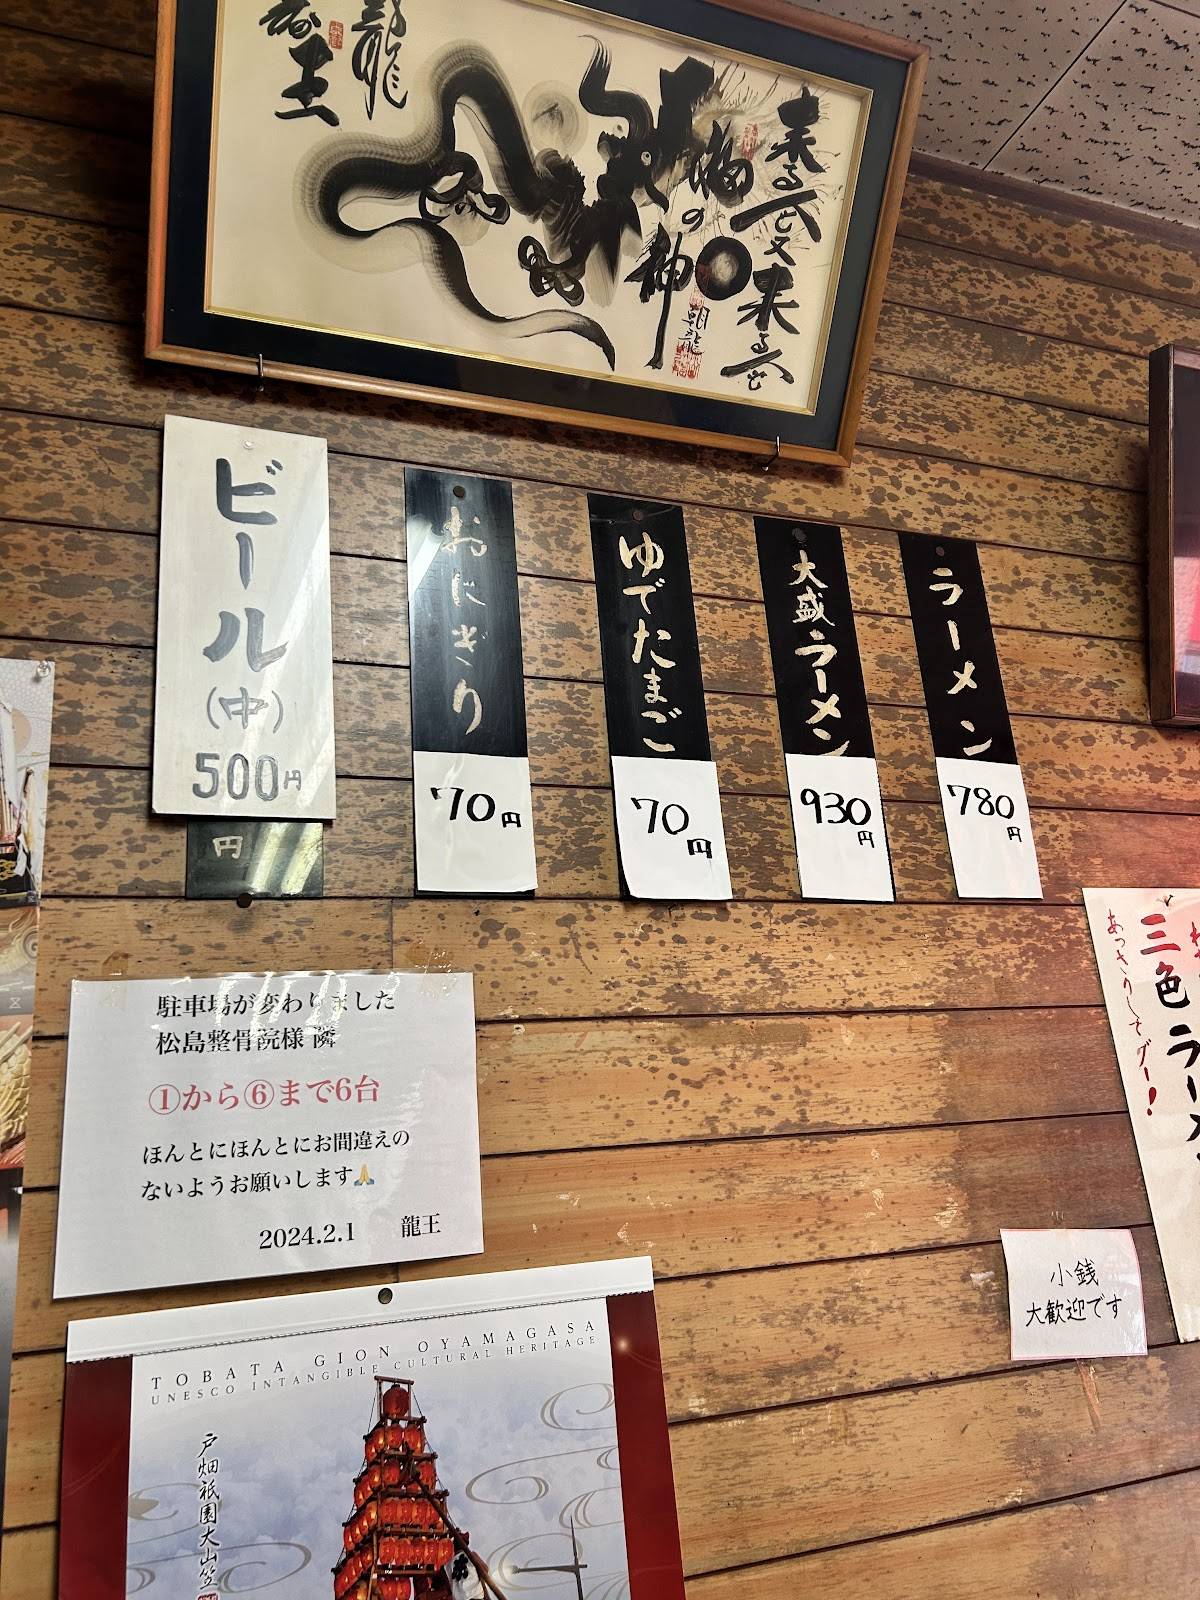 龍王
来る人も又来る人も
福の神
ラーメン
780円
大盛ラーメン
930円
ゆでたまご
70円
おにぎり
70円
ビール
(中)
500円
円
駐車場が変わりました
松島整骨院様 隣
①から⑥まで6台
ほんとにほんとにお間違えの
ないようお願いします🙏
2024.2.1 龍王
三色ラーメン
あっさりしてグー!
小銭
大歓迎です
TOBATA GION OYAMAGASA
UNESCO INTANGIBLE CULTURAL HERITAGE
戸畑祇園大山笠